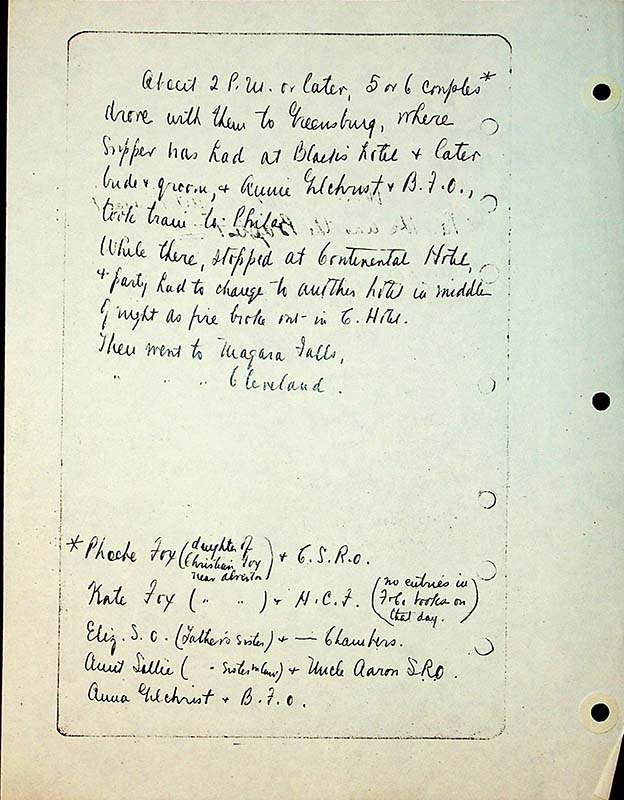 About 2 P.M. or later, 5 or 6 couples*
drove with them to Greensburg, where
supper was had at Black's hotel & later
bride & groom, & Annie Gilchrist & B.F.O.,
took train to Phila.
While there, stopped at Continental Hotel,
& party had to change to another hotel in middle
of night as fire broke out in C. Hotel.
Then went to Niagara Falls,
" " " Cleveland.
* Phoebe Fox (daughter of Christian Fox near alverton) & C.S.R.O.
Kate Fox ( " " ) & H.C.F. (no entries in F. Co. books on that day.)
Eliz. S. O. (Father's sister) & — Chambers.
Aunt Sallie ( " sister in law) & Uncle Aaron S.R.O.
Anna Gilchrist & B.F.O.